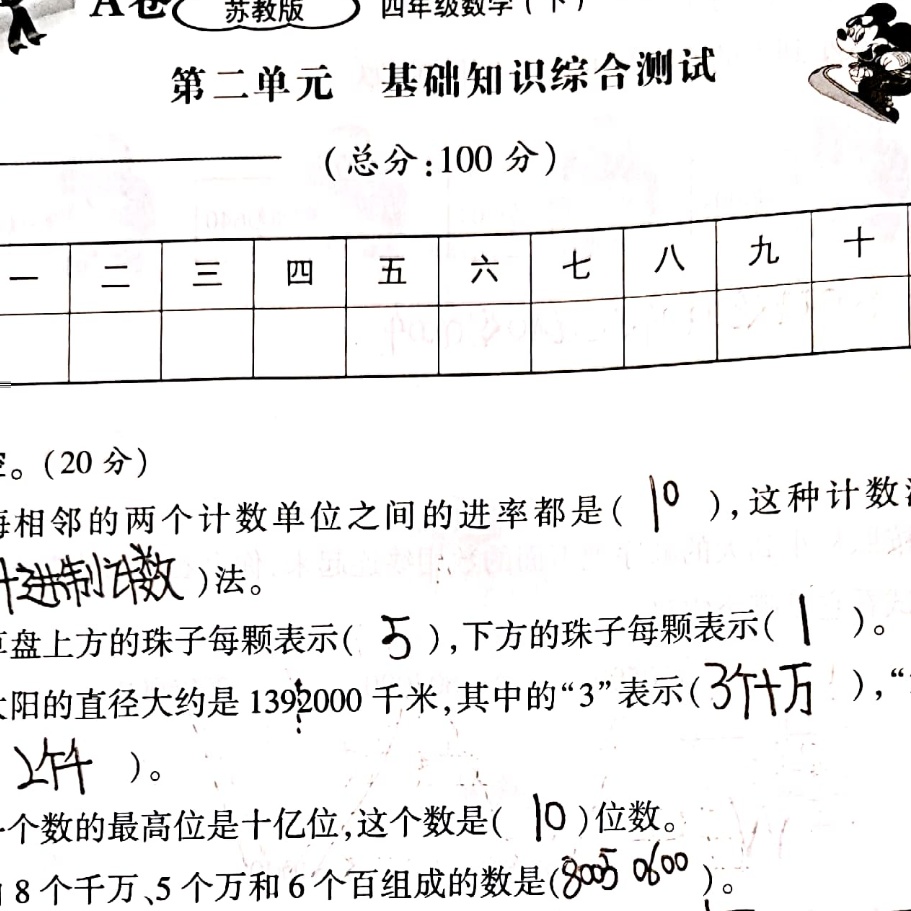 A卷 苏教版 四年级数学(下)
第二单元 基础知识综合测试
(总分:100分)
一 二 三 四 五 六 七 八 九 十
。(20分)
每相邻的两个计数单位之间的进率都是( 10 ),这种计数
十进制计数 )法。
算盘上方的珠子每颗表示( 5 ),下方的珠子每颗表示( 1 )。
太阳的直径大约是1392000千米,其中的“3”表示(3个十万 ),“
2个千 )。
一个数的最高位是十亿位,这个数是( 10 )位数。
8个千万、5个万和6个百组成的数是(8005 0600 )。